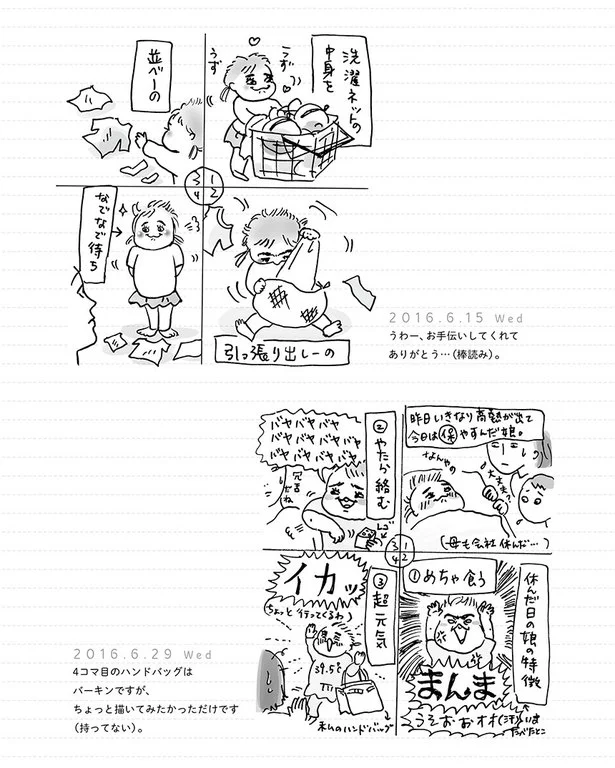 洗濯ネットの
中身を
うず
うず
引っ張り出しーの
並べーの
なでなで待ち
3 1
4 2
2016.6.15 Wed
うわー、お手伝いしてくれて
ありがとう…(棒読み)。
昨日いきなり高熱が出て
今日は㋭やすんだ娘。
(母も会社休んだ…)
休んだ日の娘の特徴
①めちゃ食う
まんま
うそおおオオ(汗)
いま
たべたとこ
②やたら絡む
バヤバヤバヤ
バヤバヤバヤバヤ
バヤバヤバヤバヤ
③超元気
イカッ
(ちょっと行ってくるわ)
39.5℃
私のハンドバッグ
3 1
4 2
2016.6.29 Wed
4コマ目のハンドバッグは
バーキンですが、
ちょっと描いてみたかっただけです
(持ってない)。